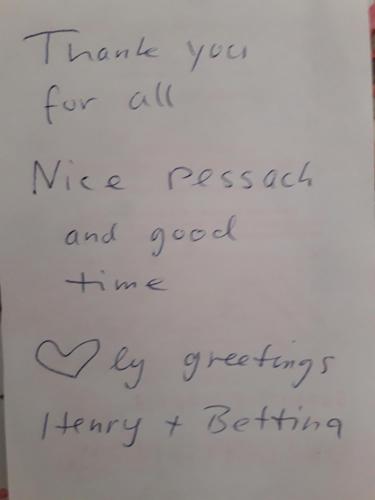 Thank you
for all
Nice Pessach
and good
time
♡ly greetings
Henry + Bettina